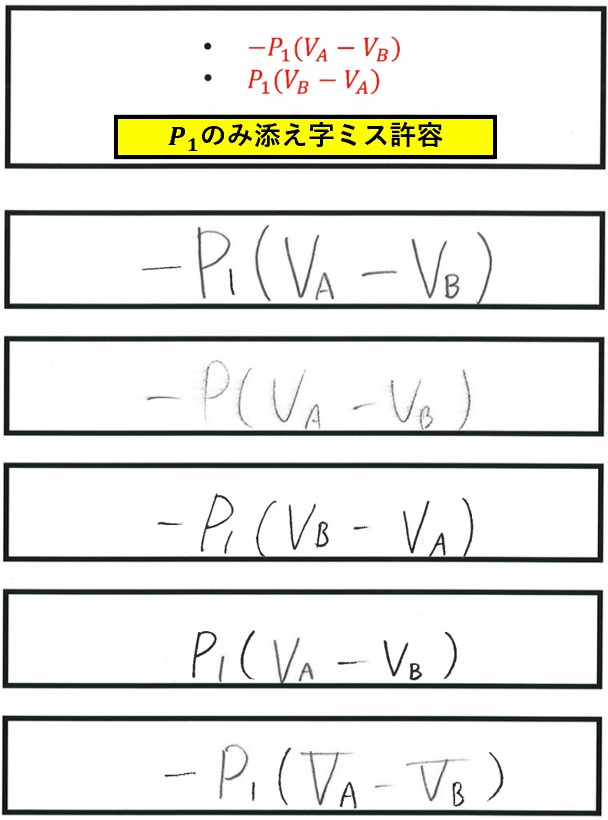 • −P₁(V_A − V_B)
• P₁(V_B − V_A)
P₁のみ添え字ミス許容
−P₁(V_A − V_B)
−P(V_A − V_B)
−P₁(V_B − V_A)
P₁(V_A − V_B)
−P₁(V̅_A − V̅_B)